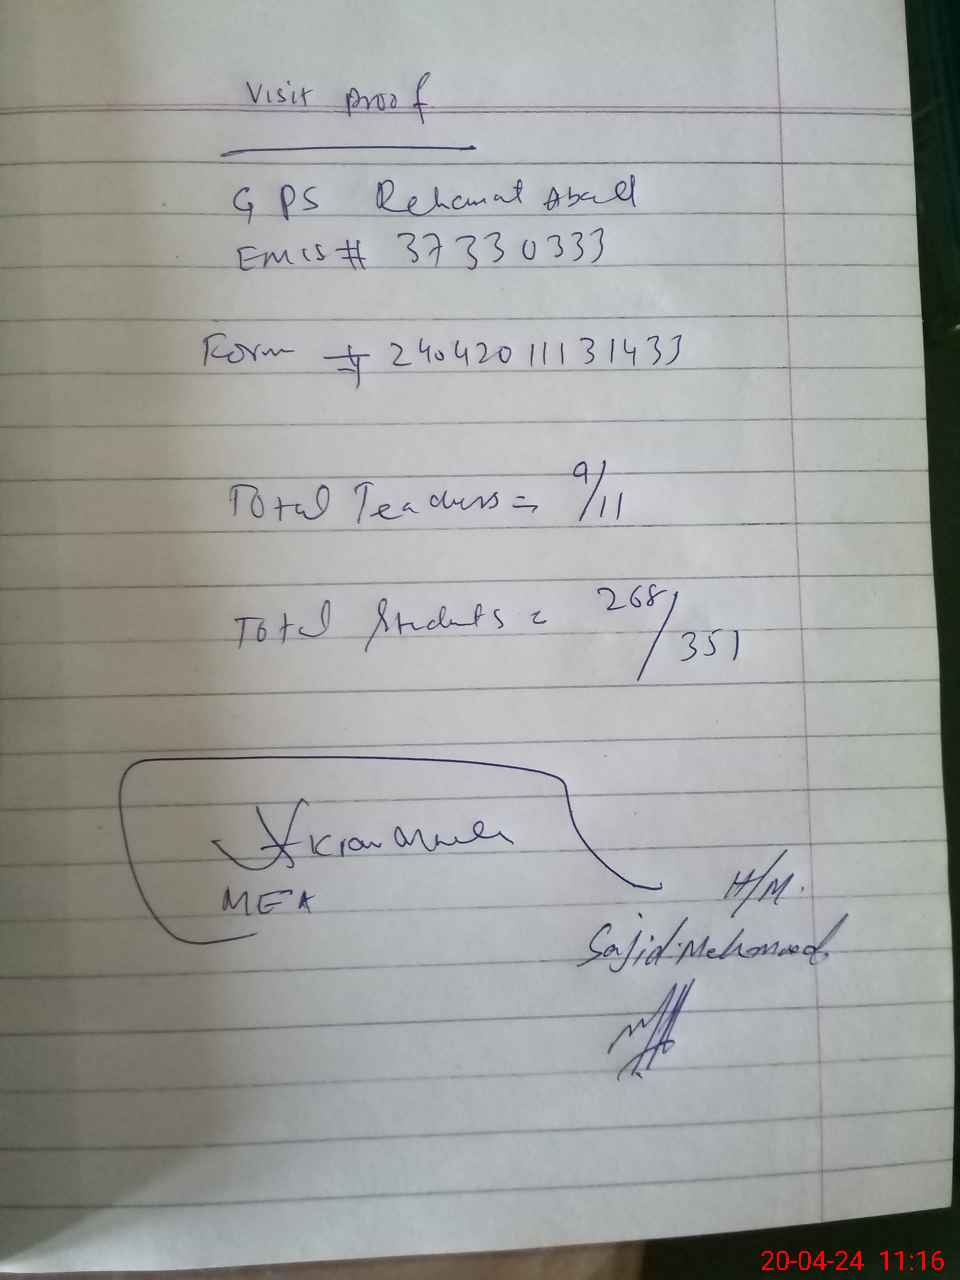 Visit proof
GPS Rehamat Abad
Emis # 37330333
Form # 24042011131433
Total Teachers = 9/11
Total Students = 268/351
MEA
H/M.
Sajid Mehmood
20-04-24 11:16